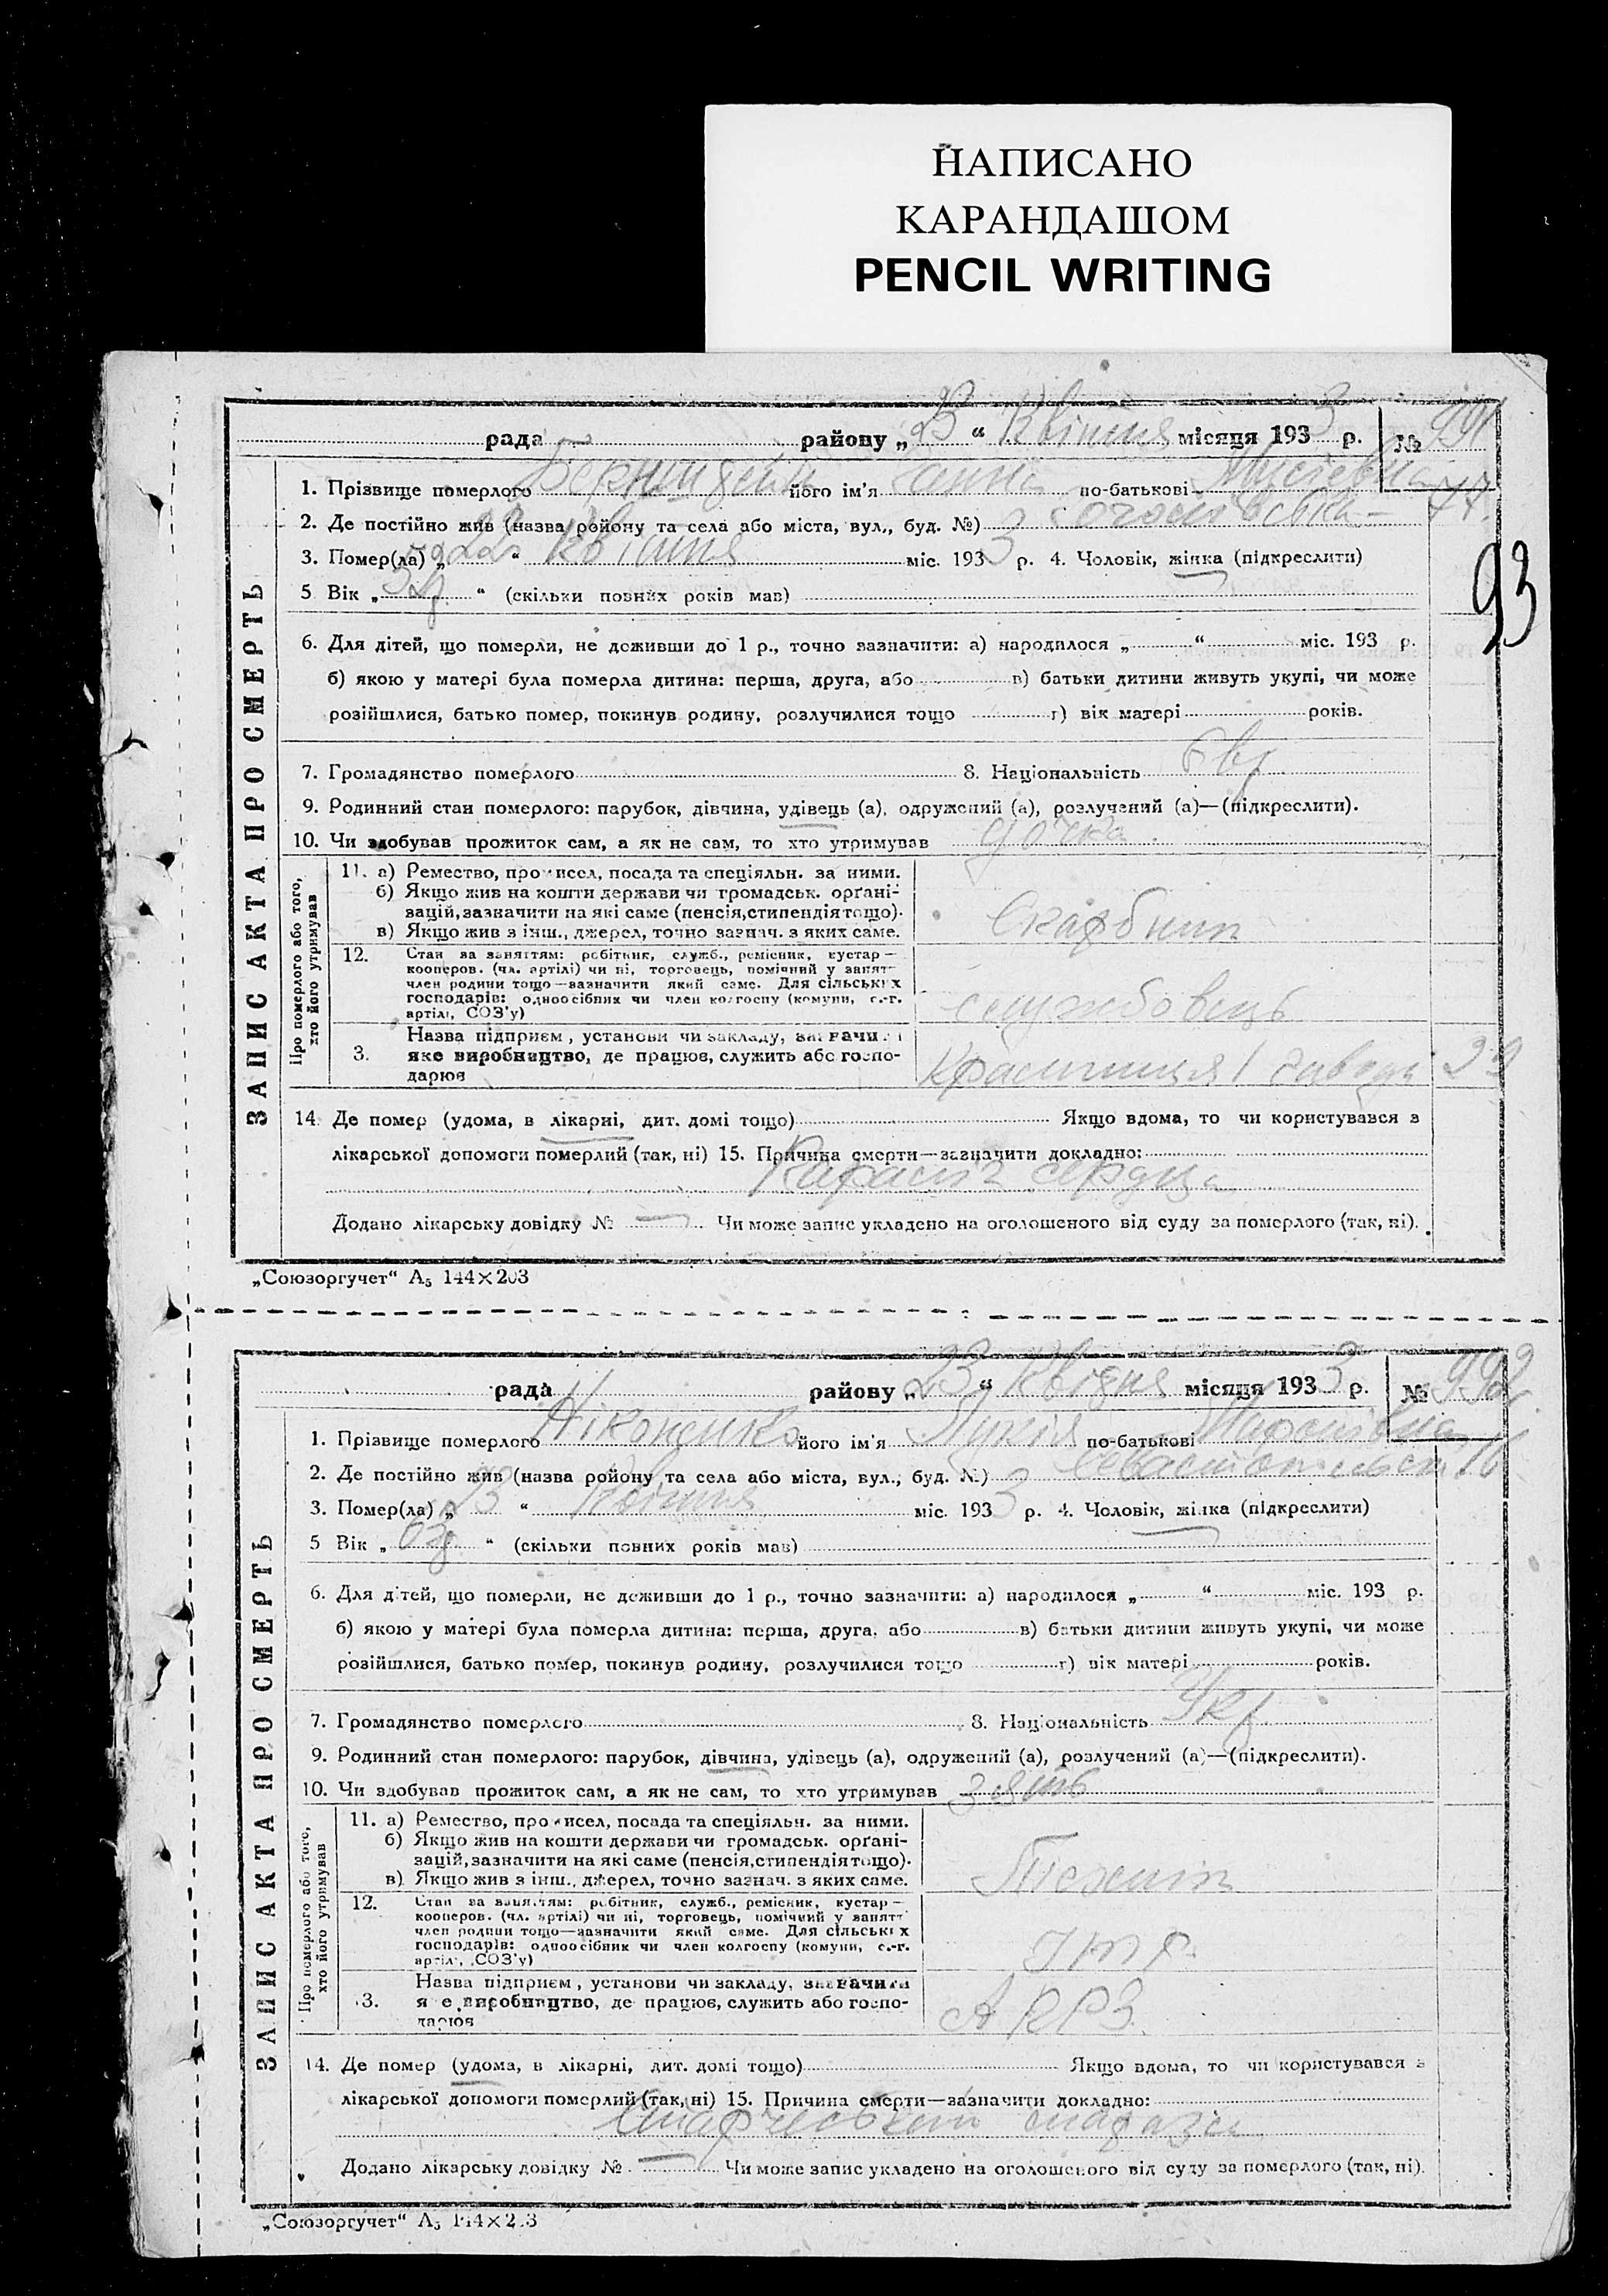 НАПИСАНО
КАРАНДАШОМ
PENCIL WRITING
рада району „23“ Квітня місяця 1933 р. № 991
1. Прізвище померлого його ім'я Ганна по-батькові
2. Де постійно жив (назва району та села або міста, вул., буд. №)
3. Помер(ла) „22“ Квітня міс. 1933 р. 4. Чоловік, жінка (підкреслити)
5 Вік „ “ (скільки повних років мав)
93
6. Для дітей, що померли, не доживши до 1 р., точно зазначити: а) народилося „ “ міс. 193 р.
б) якою у матері була померла дитина: перша, друга, або в) батьки дитини живуть укупі, чи може
розійшлися, батько помер, покинув родину, розлучилися тощо г) вік матері років.
7. Громадянство померлого 8. Національність Євр
9. Родинний стан померлого: парубок, дівчина, удівець (а), одружений (а), розлучений (а)—(підкреслити).
10. Чи здобував прожиток сам, а як не сам, то хто утримував дочка
ЗАПИС АКТА ПРО СМЕРТЬ
Про померлого або того, хто його утримував
11. а) Ремество, промисел, посада та спеціяльн. за ними.
б) Якщо жив на кошти держави чи громадськ. орґані-
зацій, зазначити на які саме (пенсія, стипендія тощо).
в) Якщо жив з інш., джерел, точно зазнач. з яких саме.
Скарбник
12. Стан за заняттям: робітник, служб., ремісник, кустар—
кооперов. (чл. артілі) чи ні, торговець, помічний у занятт
член родини тощо—зазначити який саме. Для сільських
господарів: одноосібник чи член колгоспу (комуни, с.-г.
артілі, СОЗ'у)
службовець
3. Назва підприєм, установи чи закладу, зазначити
яке виробництво, де працює, служить або госпо-
дарює
14. Де помер (удома, в лікарні, дит. домі тощо) Якщо вдома, то чи користувався з
лікарської допомоги померлий (так, ні) 15. Причина смерти—зазначити докладно:
Параліч серця
Додано лікарську довідку № — Чи може запис укладено на оголошеного від суду за померлого (так, ні).
„Союзоргучет“ А₅ 144×203
рада району „23“ Квітня місяця 1933 р. № 992
1. Прізвище померлого Ніконенко його ім'я Лукія по-батькові
2. Де постійно жив (назва району та села або міста, вул., буд. №) 16
3. Помер(ла) „23“ Квітня міс. 1933 р. 4. Чоловік, жінка (підкреслити)
5 Вік „63р.“ (скільки повних років мав)
6. Для дітей, що померли, не доживши до 1 р., точно зазначити: а) народилося „ “ міс. 193 р.
б) якою у матері була померла дитина: перша, друга, або в) батьки дитини живуть укупі, чи може
розійшлися, батько помер, покинув родину, розлучилися тощо г) вік матері років.
7. Громадянство померлого 8. Національність Укр.
9. Родинний стан померлого: парубок, дівчина, удівець (а), одружений (а), розлучений (а)—(підкреслити).
10. Чи здобував прожиток сам, а як не сам, то хто утримував зять
ЗАПИС АКТА ПРО СМЕРТЬ
Про померлого або того, хто його утримував
11. а) Ремество, промисел, посада та спеціяльн. за ними.
б) Якщо жив на кошти держави чи громадськ. орґані-
зацій, зазначити на які саме (пенсія, стипендія тощо).
в) Якщо жив з інш., джерел, точно зазнач. з яких саме.
Технік
12. Стан за заняттям: робітник, служб., ремісник, кустар—
кооперов. (чл. артілі) чи ні, торговець, помічний у занятт
член родини тощо—зазначити який саме. Для сільських
господарів: одноосібник чи член колгоспу (комуни, с.-г.
артілі, СОЗ'у)
ІТР
3. Назва підприєм, установи чи закладу, зазначити
яке виробництво, де працює, служить або госпо-
дарює
АРРЗ
14. Де помер (удома, в лікарні, дит. домі тощо) Якщо вдома, то чи користувався з
лікарської допомоги померлий (так, ні) 15. Причина смерти—зазначити докладно:
Старческий маразм
Додано лікарську довідку № — Чи може запис укладено на оголошеного від суду за померлого (так, ні).
„Союзоргучет“ А₅ 144×203